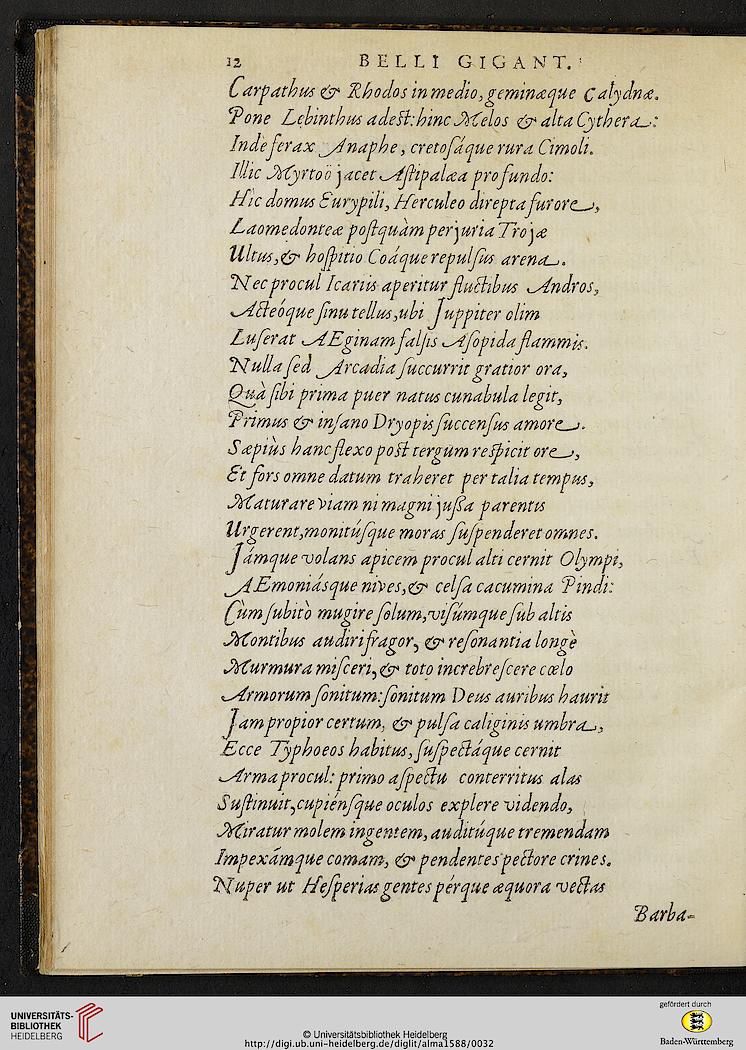 12 BELLI GIGANT.
Carpathus & Rhodos in medio, geminæque Calydnæ.
Pone Lebinthus adest: hinc Melos & alta Cythera:
Inde ferax Anaphe, cretosáque rura Cimoli.
Illic Myrtoö jacet Astipalæa profundo:
Hîc domus Eurypili, Herculeo direpta furore,
Laomedonteæ postquàm perjuria Trojæ
Ultus, & hospitio Coáque repulsus arena.
Nec procul Icariis aperitur fluctibus Andros,
Acteóque sinu tellus, ubi Juppiter olim
Luserat AEginam falsis Asopida flammis.
Nulla sed Arcadia succurrit gratior ora,
Quà sibi prima puer natus cunabula legit,
Primus & insano Dryopis succensus amore.
Sæpiùs hanc flexo post tergum respicit ore,
Et fors omne datum traheret per talia tempus,
Maturare viam ni magni jussa parentis
Urgerent, monitúsque moras suspenderet omnes.
Jámque volans apicem procul alti cernit Olympi,
AEmoniásque nives, & celsa cacumina Pindi:
Cùm subitò mugire solum, visúmque sub altis
Montibus audiri fragor, & resonantia longè
Murmura misceri, & toto increbrescere cœlo
Armorum sonitum: sonitum Deus auribus haurit
Jam propior certum, & pulsa caliginis umbra,
Ecce Typhoeos habitus, suspectáque cernit
Arma procul: primo aspectu conterritus alas
Sustinuit, cupiénsque oculos explere videndo,
Miratur molem ingentem, auditúque tremendam
Impexámque comam, & pendentes pectore crines.
Nuper ut Hesperias gentes pérque æquora vectas
Barba-
UNIVERSITÄTS-
BIBLIOTHEK
HEIDELBERG
© Universitätsbibliothek Heidelberg
http://digi.ub.uni-heidelberg.de/diglit/alma1588/0032
gefördert durch
Baden-Württemberg